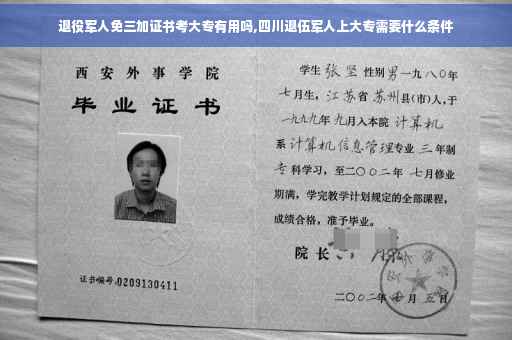 退役军人免三加证书考大专有用吗,四川退伍军人上大专需要什么条件
西安外事学院
毕业证书
证书编号:0209130411
学生 张坚 性别 男 一九八〇年
七月生, 江苏省 苏州县(市)人,于
一九九九年 九月入本院 计算机
系 计算机信息管理专业 三年制
专科学习, 至二〇〇二年 七月修业
期满, 学完教学计划规定的全部课程,
成绩合格, 准予毕业。
院长
二〇〇二年 七月 五日